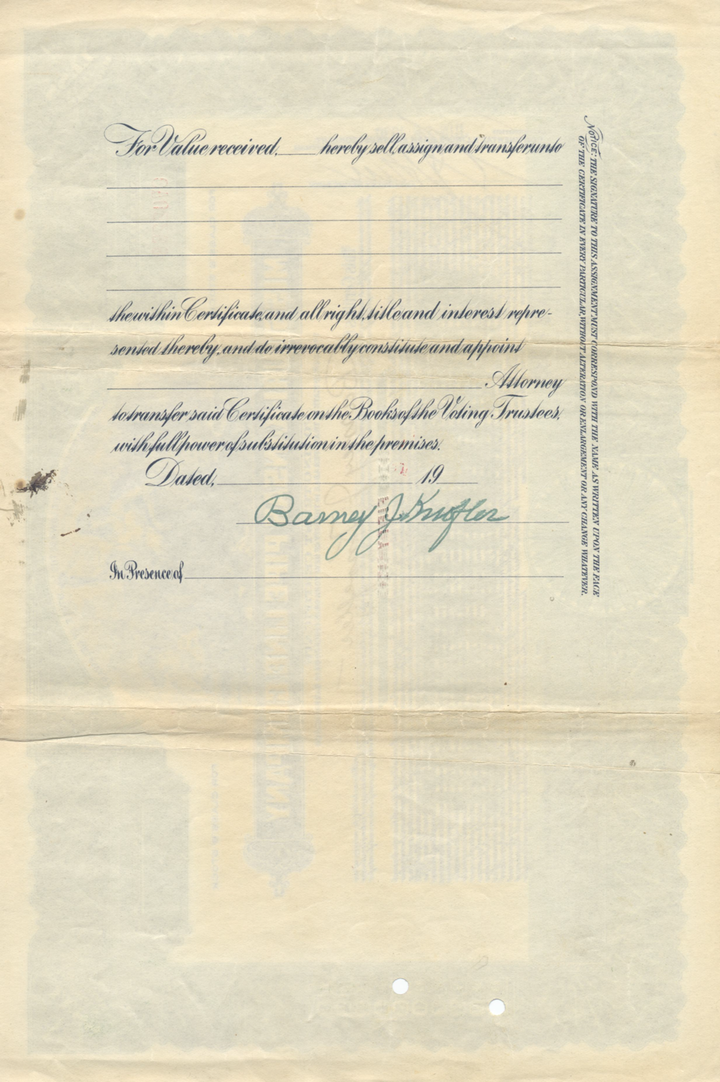 For Value received, ____ hereby sell, assign and transfer unto
the within Certificate, and all right, title and interest repre-
sented thereby, and do irrevocably constitute and appoint
Attorney
to transfer said Certificate on the Books of the Voting Trustees,
with full power of substitution in the premises.
Dated, ____ 19
Barney J.
In Presence of
NOTICE: THE SIGNATURE TO THIS ASSIGNMENT MUST CORRESPOND WITH THE NAME AS WRITTEN UPON THE FACE
OF THE CERTIFICATE IN EVERY PARTICULAR WITHOUT ALTERATION OR ENLARGEMENT OR ANY CHANGE WHATEVER.